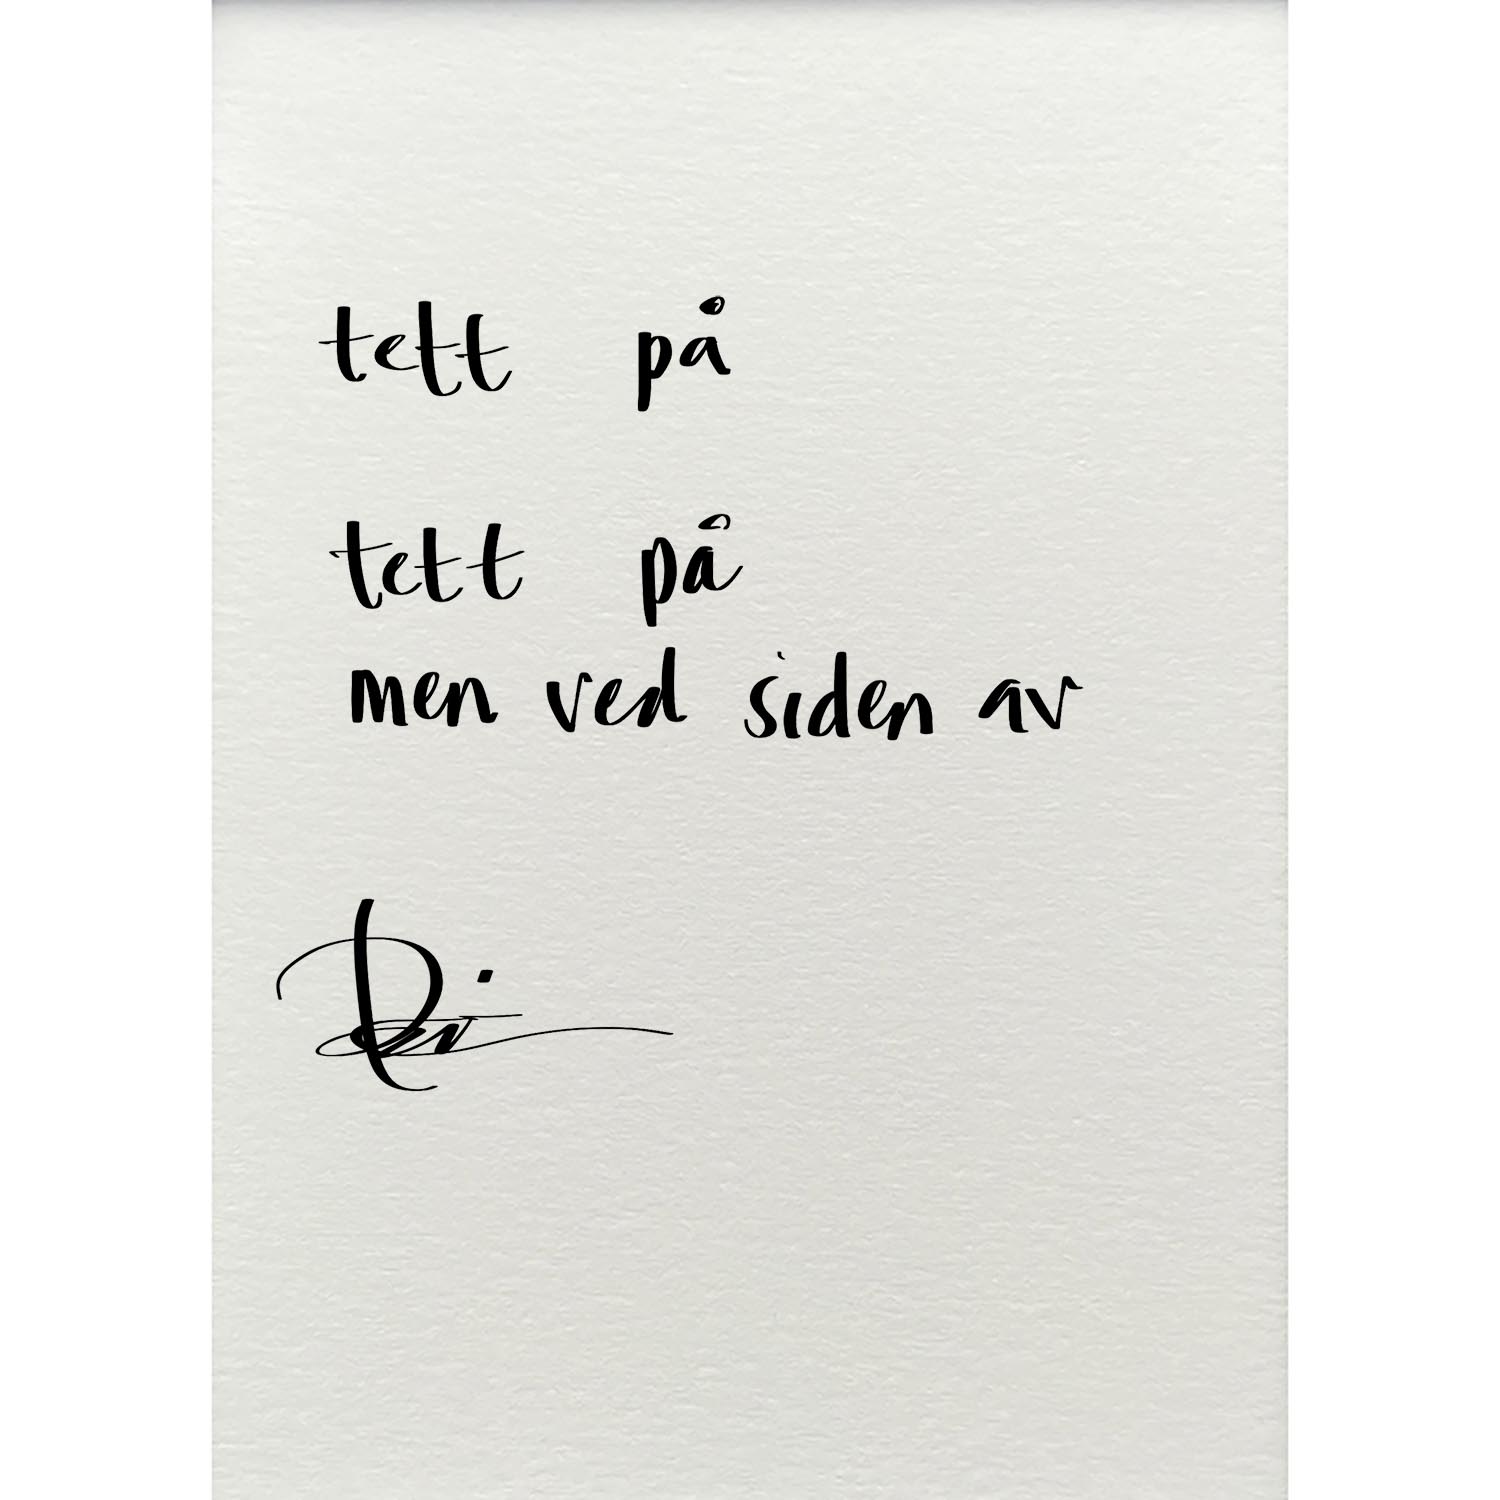 tett på
tett på
men ved siden av